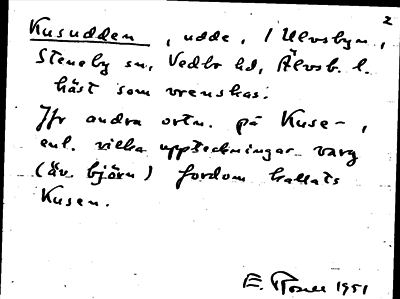 2
Kusudden, udde, i Ulvsbyn,
Steneby sn, Vedbo hd, Älvsb. l.
häst som vrenskas.
Jfr andra ortn. på Kuse-,
enl. vilka uppteckningar varg
(äv. björn) fordom kallats
Kusen.
E. 1951